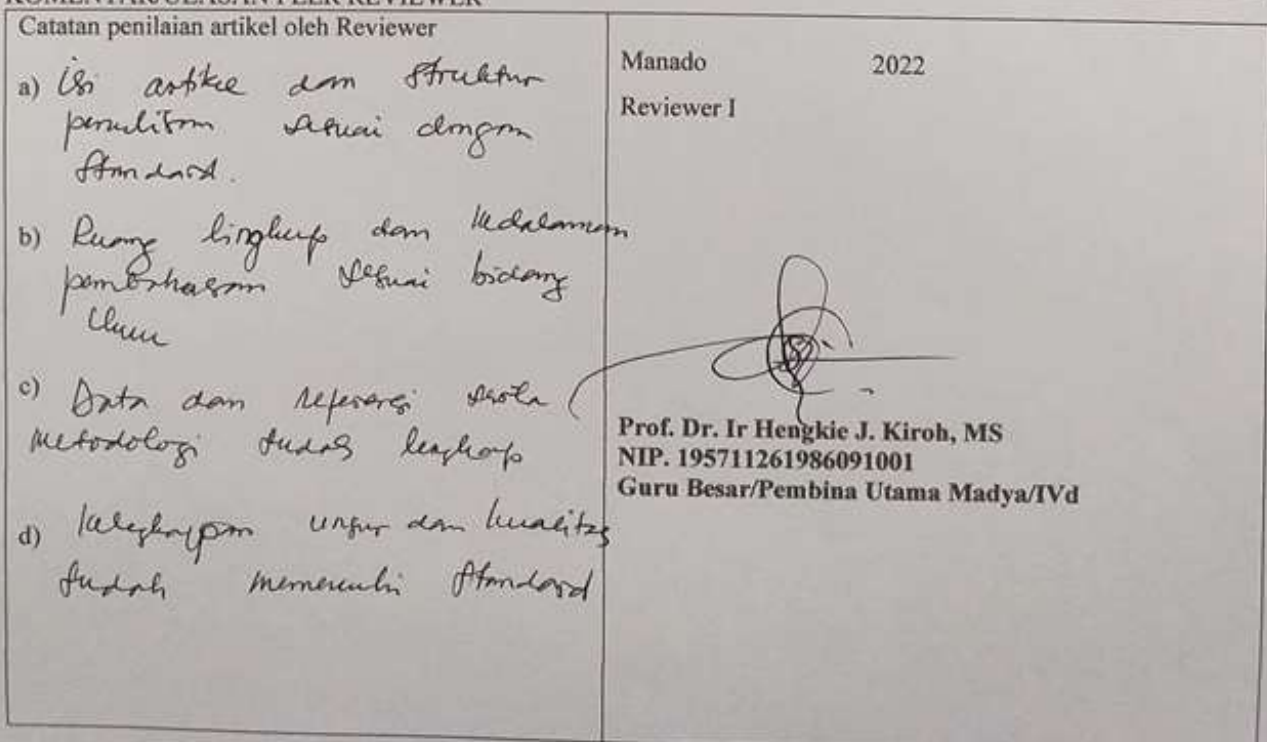 KOMENTAR/ULASAN PEER REVIEWER
Catatan penilaian artikel oleh Reviewer
a) isi artikel dan struktur
penulisan sesuai dengan
standard.
b) Ruang lingkup dan kedalaman
pembahasan sesuai bidang
ilmu
c) Data dan referensi serta
metodologi sudah lengkap
d) kelengkapan unsur dan kualitas
sudah memenuhi standard
Manado 2022
Reviewer I
Prof. Dr. Ir Hengkie J. Kiroh, MS
NIP. 195711261986091001
Guru Besar/Pembina Utama Madya/IVd